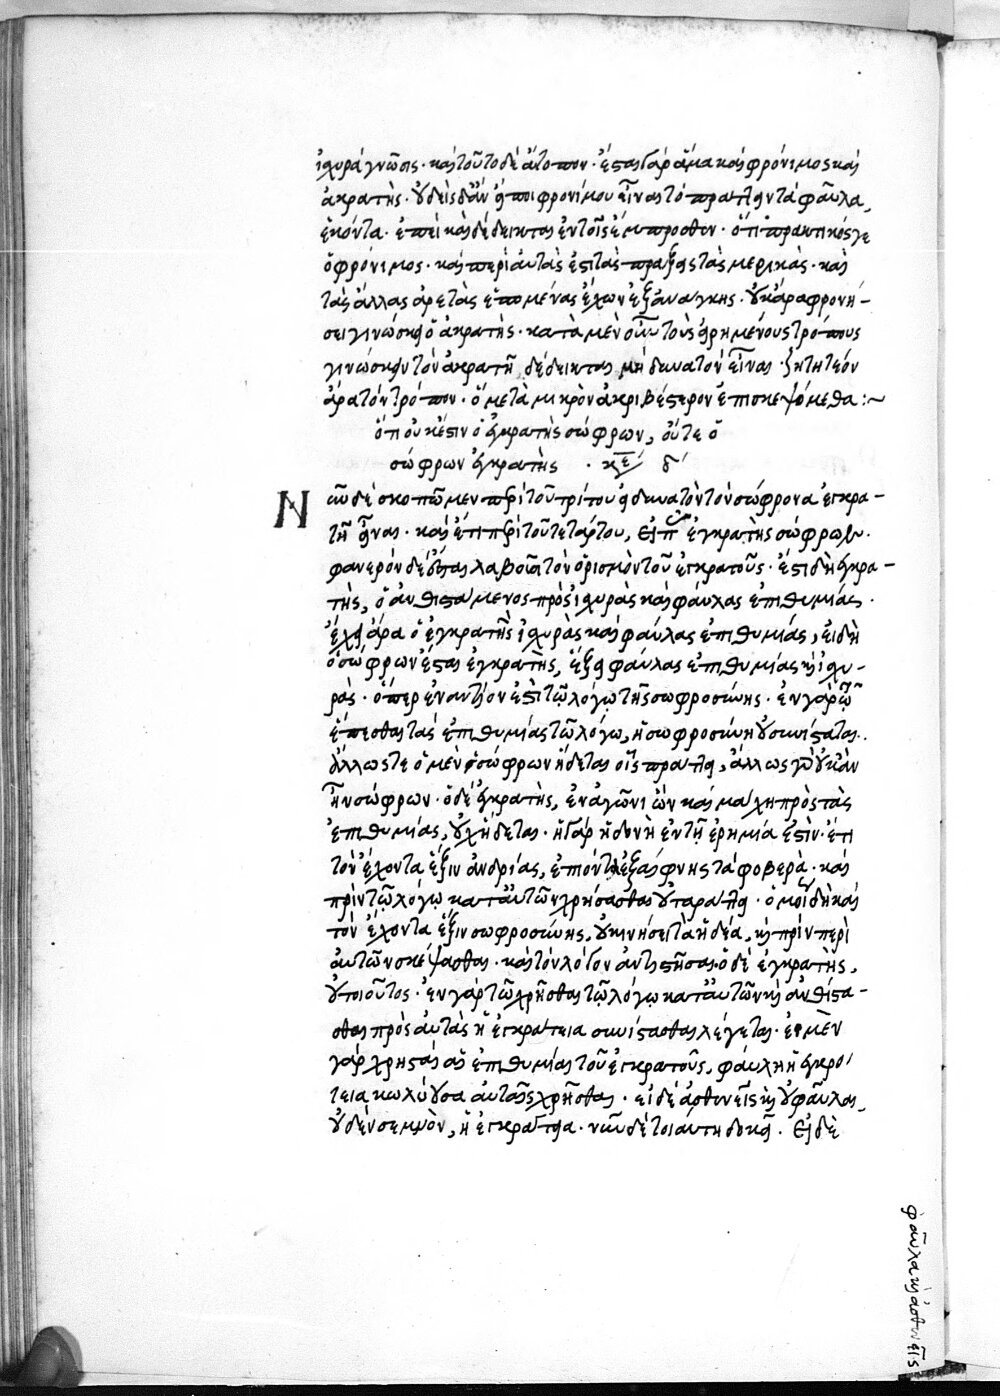 ἰχυρά γνῶσις · καὶ τοῦτο δὲ ἄτοπον · ἔσται γὰρ ἅμα καὶ φρόνιμος καὶ
ἀκρατὴς · οὐδεὶς δ' ἂν εἴποι φρονίμου εἶναι τὸ πράττειν τὰ φαῦλα,
ἑκόντα · ἐπεὶ καὶ δέδεικται ἐν τοῖς ἔμπροσθεν · ὅτι πρακτικός γε
ὁ φρόνιμος · καὶ περὶ αὐτὰς ἐστὶ τὰς πράξεις τὰς μερικὰς · καὶ
τὰς ἄλλας ἀρετὰς ἑπομένας ἔχων ἐξ ἀνάγκης · οὐκ ἄρα φρονή-
σει γινώσκει ὁ ἀκρατὴς · κατὰ μὲν οὖν τοὺς εἰρημένους τρόπους
γινώσκειν τὸν ἀκρατῆ, δέδεικται μὴ δυνατὸν εἶναι · ζητητέον
ἄρα τὸν τρόπον · ὃ μετὰ μικρὸν ἀκριβέστερον ἐπισκεψόμεθα :~
ὅτι οὐκ ἔστιν ὁ ἐγκρατὴς σώφρων, οὔτε ὁ
σώφρων ἐγκρατὴς · κε δ'
Νῦν δὲ σκοπῶμεν περὶ τοῦ τρίτου εἰ δυνατὸν τὸν σώφρονα ἐγκρα-
τῆ εἶναι · καὶ ἔτι περὶ τοῦ τετάρτου, εἰ ὁ ἐγκρατὴς σώφρων.
φανερὸν δὲ ἔσται λαβοῦσι τὸν ὁρισμὸν τοῦ ἐγκρατοῦς · ἔστι δὴ ἐγκρα-
τὴς, ὁ ἀνθιστάμενος πρὸς ἰχυρὰς καὶ φαύλας ἐπιθυμίας ·
ἔχει ἄρα ὁ ἐγκρατὴς ἰχυρὰς καὶ φαύλας ἐπιθυμίας, εἰ δὴ
ὁ σώφρων ἔσται ἐγκρατὴς, ἕξει φαύλας ἐπιθυμίας καὶ ἰχυ-
ράς · ὅπερ ἐναντίον ἐστὶ τῷ λόγῳ τῆς σωφροσύνης · ἐν γὰρ τῷ
ἕπεσθαι τὰς ἐπιθυμίας τῷ λόγῳ, ἡ σωφροσύνη συνίσταται.
ἄλλως τε ὁ μὲν σώφρων ἥδεται οἷς πράττει, ἄλλως γὰρ οὐκ ἂν
ἦν σώφρων · ὁ δὲ ἐγκρατὴς, ἐν ἀγῶνι ὢν καὶ μάχῃ πρὸς τὰς
ἐπιθυμίας, οὐχ ἥδεται · ἡ γὰρ ἡδονὴ ἐν τῇ ἐρημίᾳ ἐστὶν · ἔτι
τὸν ἔχοντα ἕξιν ἀνδρίας, ἐπιόντα ἐξαίφνης τὰ φοβερὰ · καὶ
πρὶν τῷ λόγῳ κατ' αὐτῶν χρήσασθαι οὐ ταράττει · ὁμοίως δὴ καὶ
τὸν ἔχοντα ἕξιν σωφροσύνης, οὐ κινήσει τὰ ἡδέα, καὶ πρὶν περὶ
αὐτῶν σκέψασθαι · καὶ τὸν λόγον ἀντιστῆσαι · ὁ δὲ ἐγκρατὴς,
οὐ τοιοῦτος · ἐν γὰρ τῷ χρῆσθαι τῷ λόγῳ κατ' αὐτῶν καὶ ἀνθίστα-
σθαι πρὸς αὐτὰς ἡ ἐγκράτεια συνίστασθαι λέγεται · εἰ μὲν
γὰρ χρησταὶ αἱ ἐπιθυμίαι τοῦ ἐγκρατοῦς, φαύλη ἡ ἐγκρά-
τεια κωλύουσα αὐταῖς χρῆσθαι · εἰ δὲ ἀσθενεῖς καὶ οὐ φαῦλαι,
οὐδὲν σεμνὸν, ἡ ἐγκράτεια · νῦν δὲ τοιαύτη δοκεῖ · εἰ δὲ
φαῦλαι καὶ ἀσθενεῖς